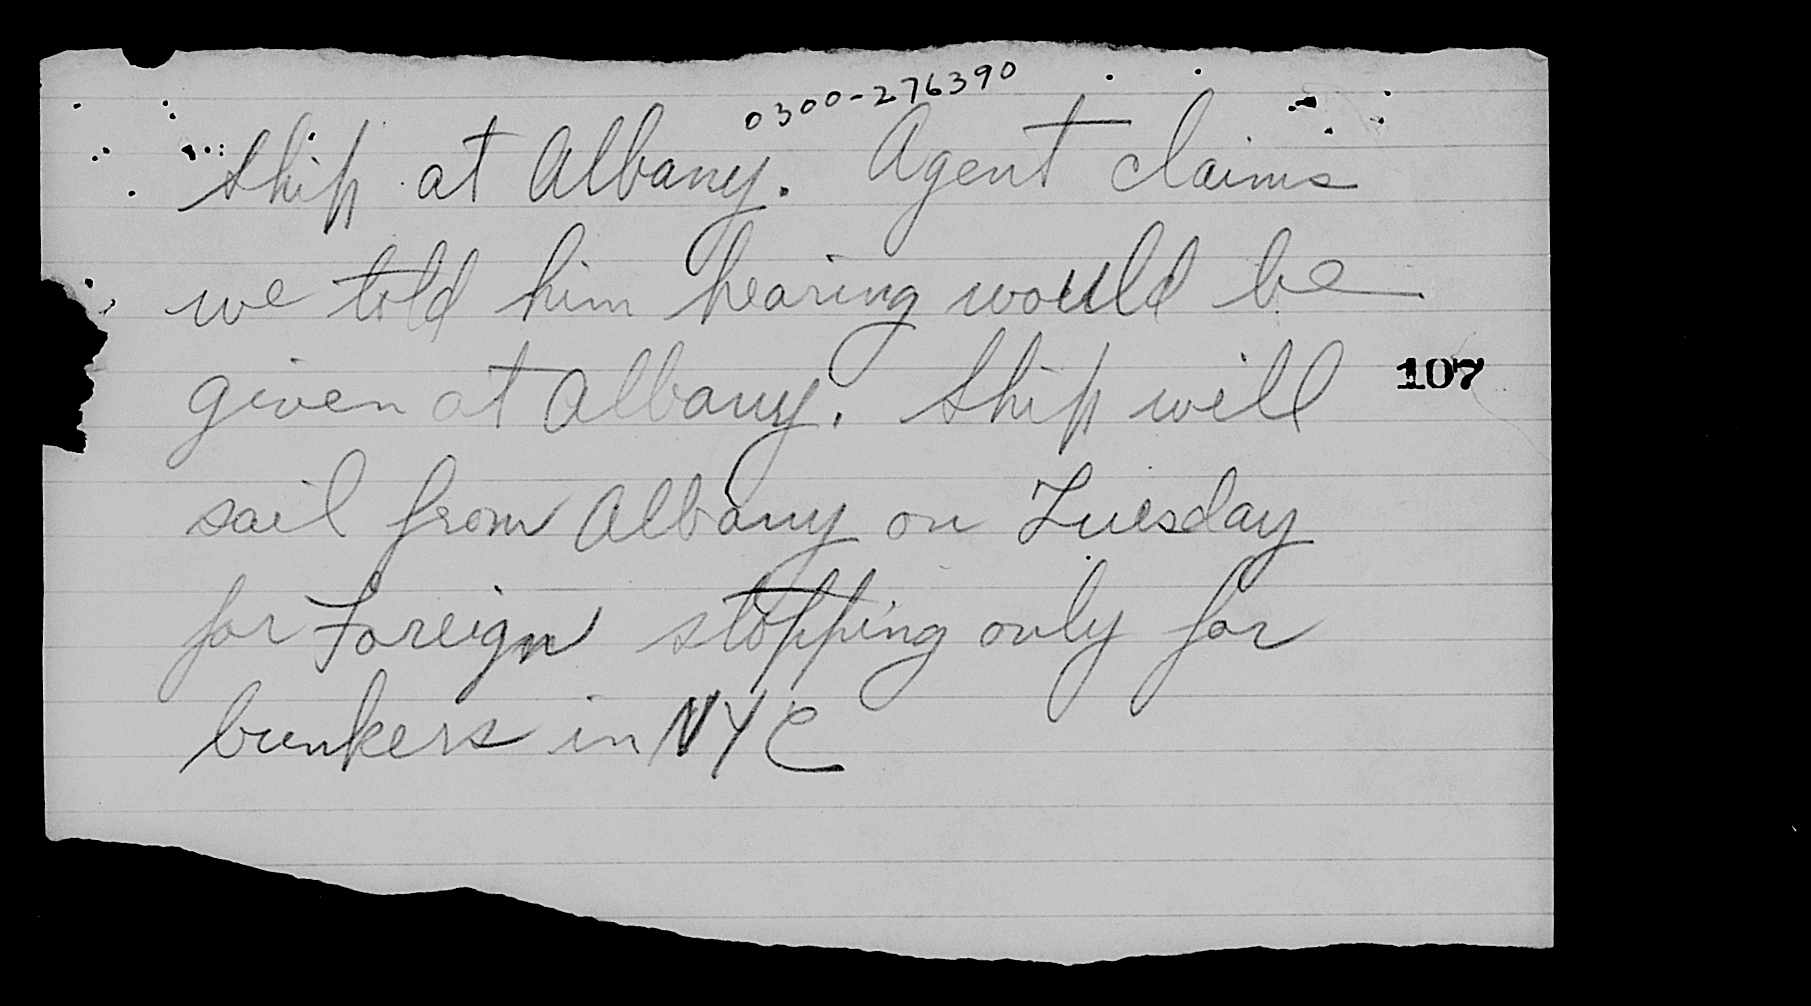 0300-276390
Ship at Albany. Agent claims
we told him hearing would be
given at Albany. Ship will
107
sail from Albany on Tuesday
for Foreign stopping only for
bunkers in NYC